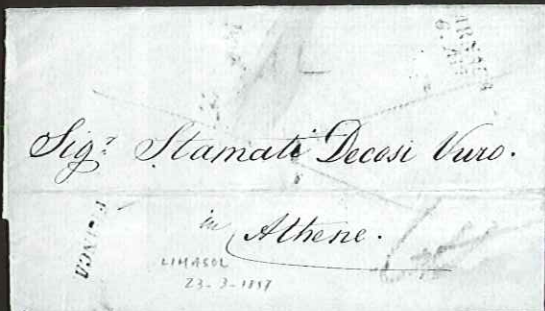 Sig.r Stamati Decosi Vuro.
in Athene.
FRANCA
LIMASOL